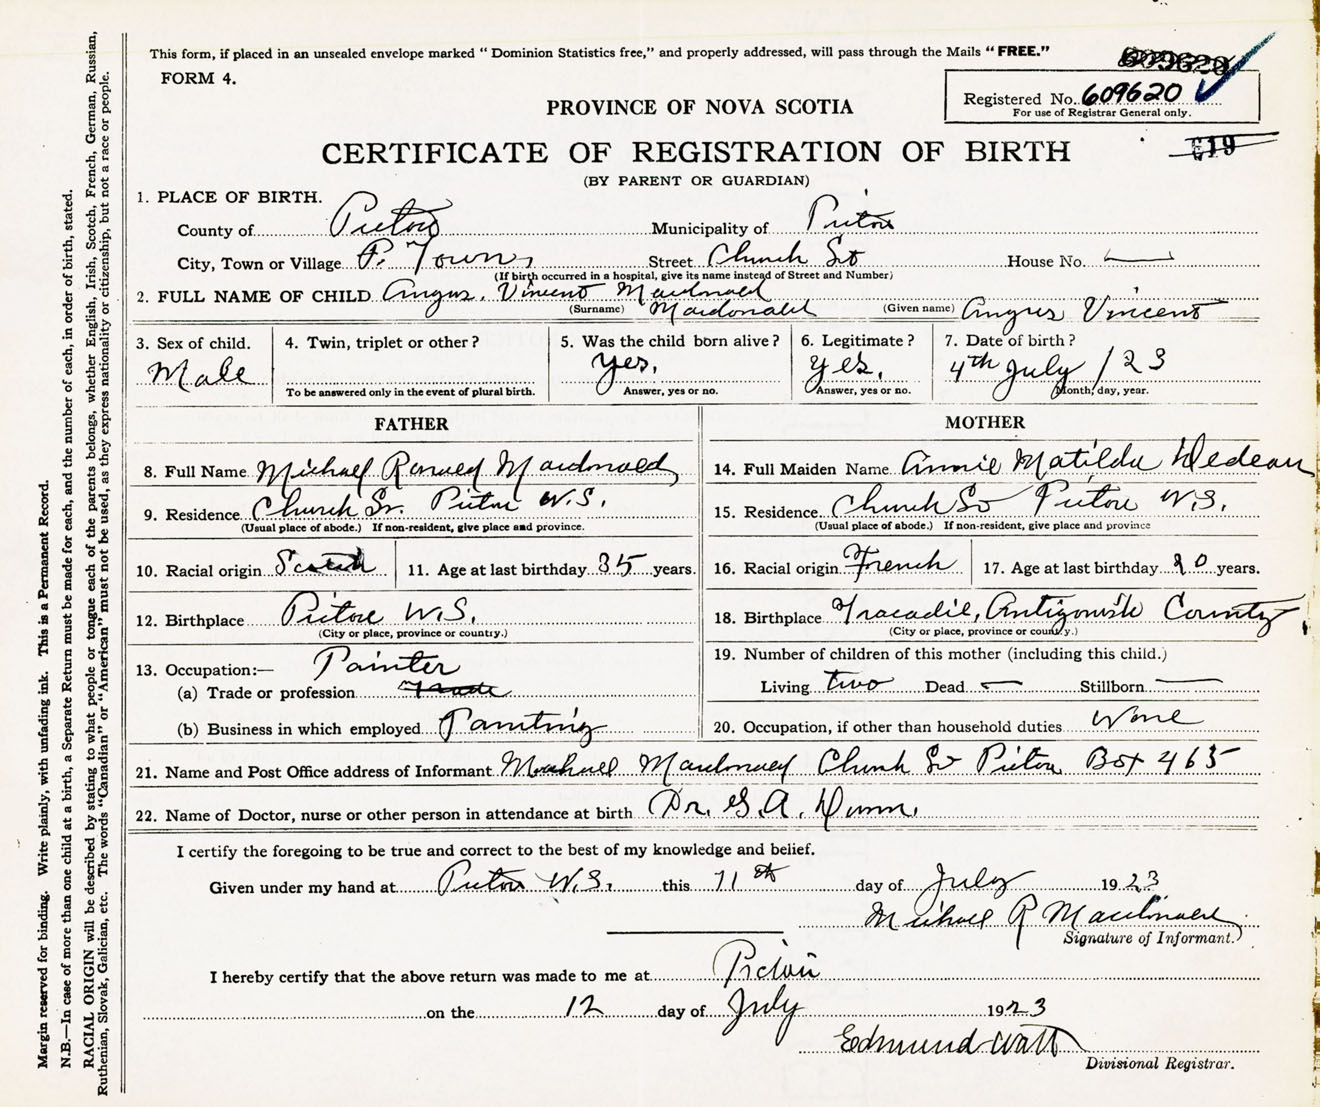 This form, if placed in an unsealed envelope marked "Dominion Statistics free," and properly addressed, will pass through the Mails "FREE."
FORM 4.
609620
Registered No. 609620
For use of Registrar General only.
PROVINCE OF NOVA SCOTIA
CERTIFICATE OF REGISTRATION OF BIRTH
(BY PARENT OR GUARDIAN)
1. PLACE OF BIRTH.
County of Pictou Municipality of Pictou
City, Town or Village P. Town Street Church St House No. —
(If birth occurred in a hospital, give its name instead of Street and Number)
2. FULL NAME OF CHILD Angus. Vincent Macdonald
(Surname) Macdonald (Given name) Angus Vincent
3. Sex of child. 4. Twin, triplet or other? 5. Was the child born alive? 6. Legitimate? 7. Date of birth?
Male yes. yes. 4th July /23
To be answered only in the event of plural birth. Answer, yes or no. Answer, yes or no. Month, day, year.
FATHER MOTHER
8. Full Name Michael Ronald Macdonald 14. Full Maiden Name Annie Matilda
9. Residence Church St. Pictou N.S. 15. Residence Church St Pictou N.S.
(Usual place of abode.) If non-resident, give place and province. (Usual place of abode.) If non-resident, give place and province
10. Racial origin Scotch 11. Age at last birthday 35 years. 16. Racial origin French 17. Age at last birthday years.
12. Birthplace Pictou N.S. 18. Birthplace Tracadie, Antigonish County
(City or place, province or country.) (City or place, province or country.)
13. Occupation:— Painter 19. Number of children of this mother (including this child.)
(a) Trade or profession Living two Dead — Stillborn —
(b) Business in which employed Painting 20. Occupation, if other than household duties None
21. Name and Post Office address of Informant Michael Macdonald Church St Pictou Box 465
22. Name of Doctor, nurse or other person in attendance at birth Dr. G.A. Dunn.
I certify the foregoing to be true and correct to the best of my knowledge and belief.
Given under my hand at Pictou N.S. this 11th day of July 1923
Michael R Macdonald
Signature of Informant.
I hereby certify that the above return was made to me at Pictou
on the 12 day of July 1923
Edmund Watt
Divisional Registrar.
Margin reserved for binding. Write plainly, with unfading ink. This is a Permanent Record.
N.B.—In case of more than one child at a birth, a Separate Return must be made for each, and the number of each, in order of birth, stated.
RACIAL ORIGIN will be described by stating to what people or tongue each of the parents belongs, whether English, Irish, Scotch, French, German, Russian,
Ruthenian, Slovak, Galician, etc. The words "Canadian" or "American" must not be used, as they express nationality or citizenship, but not a race or people.